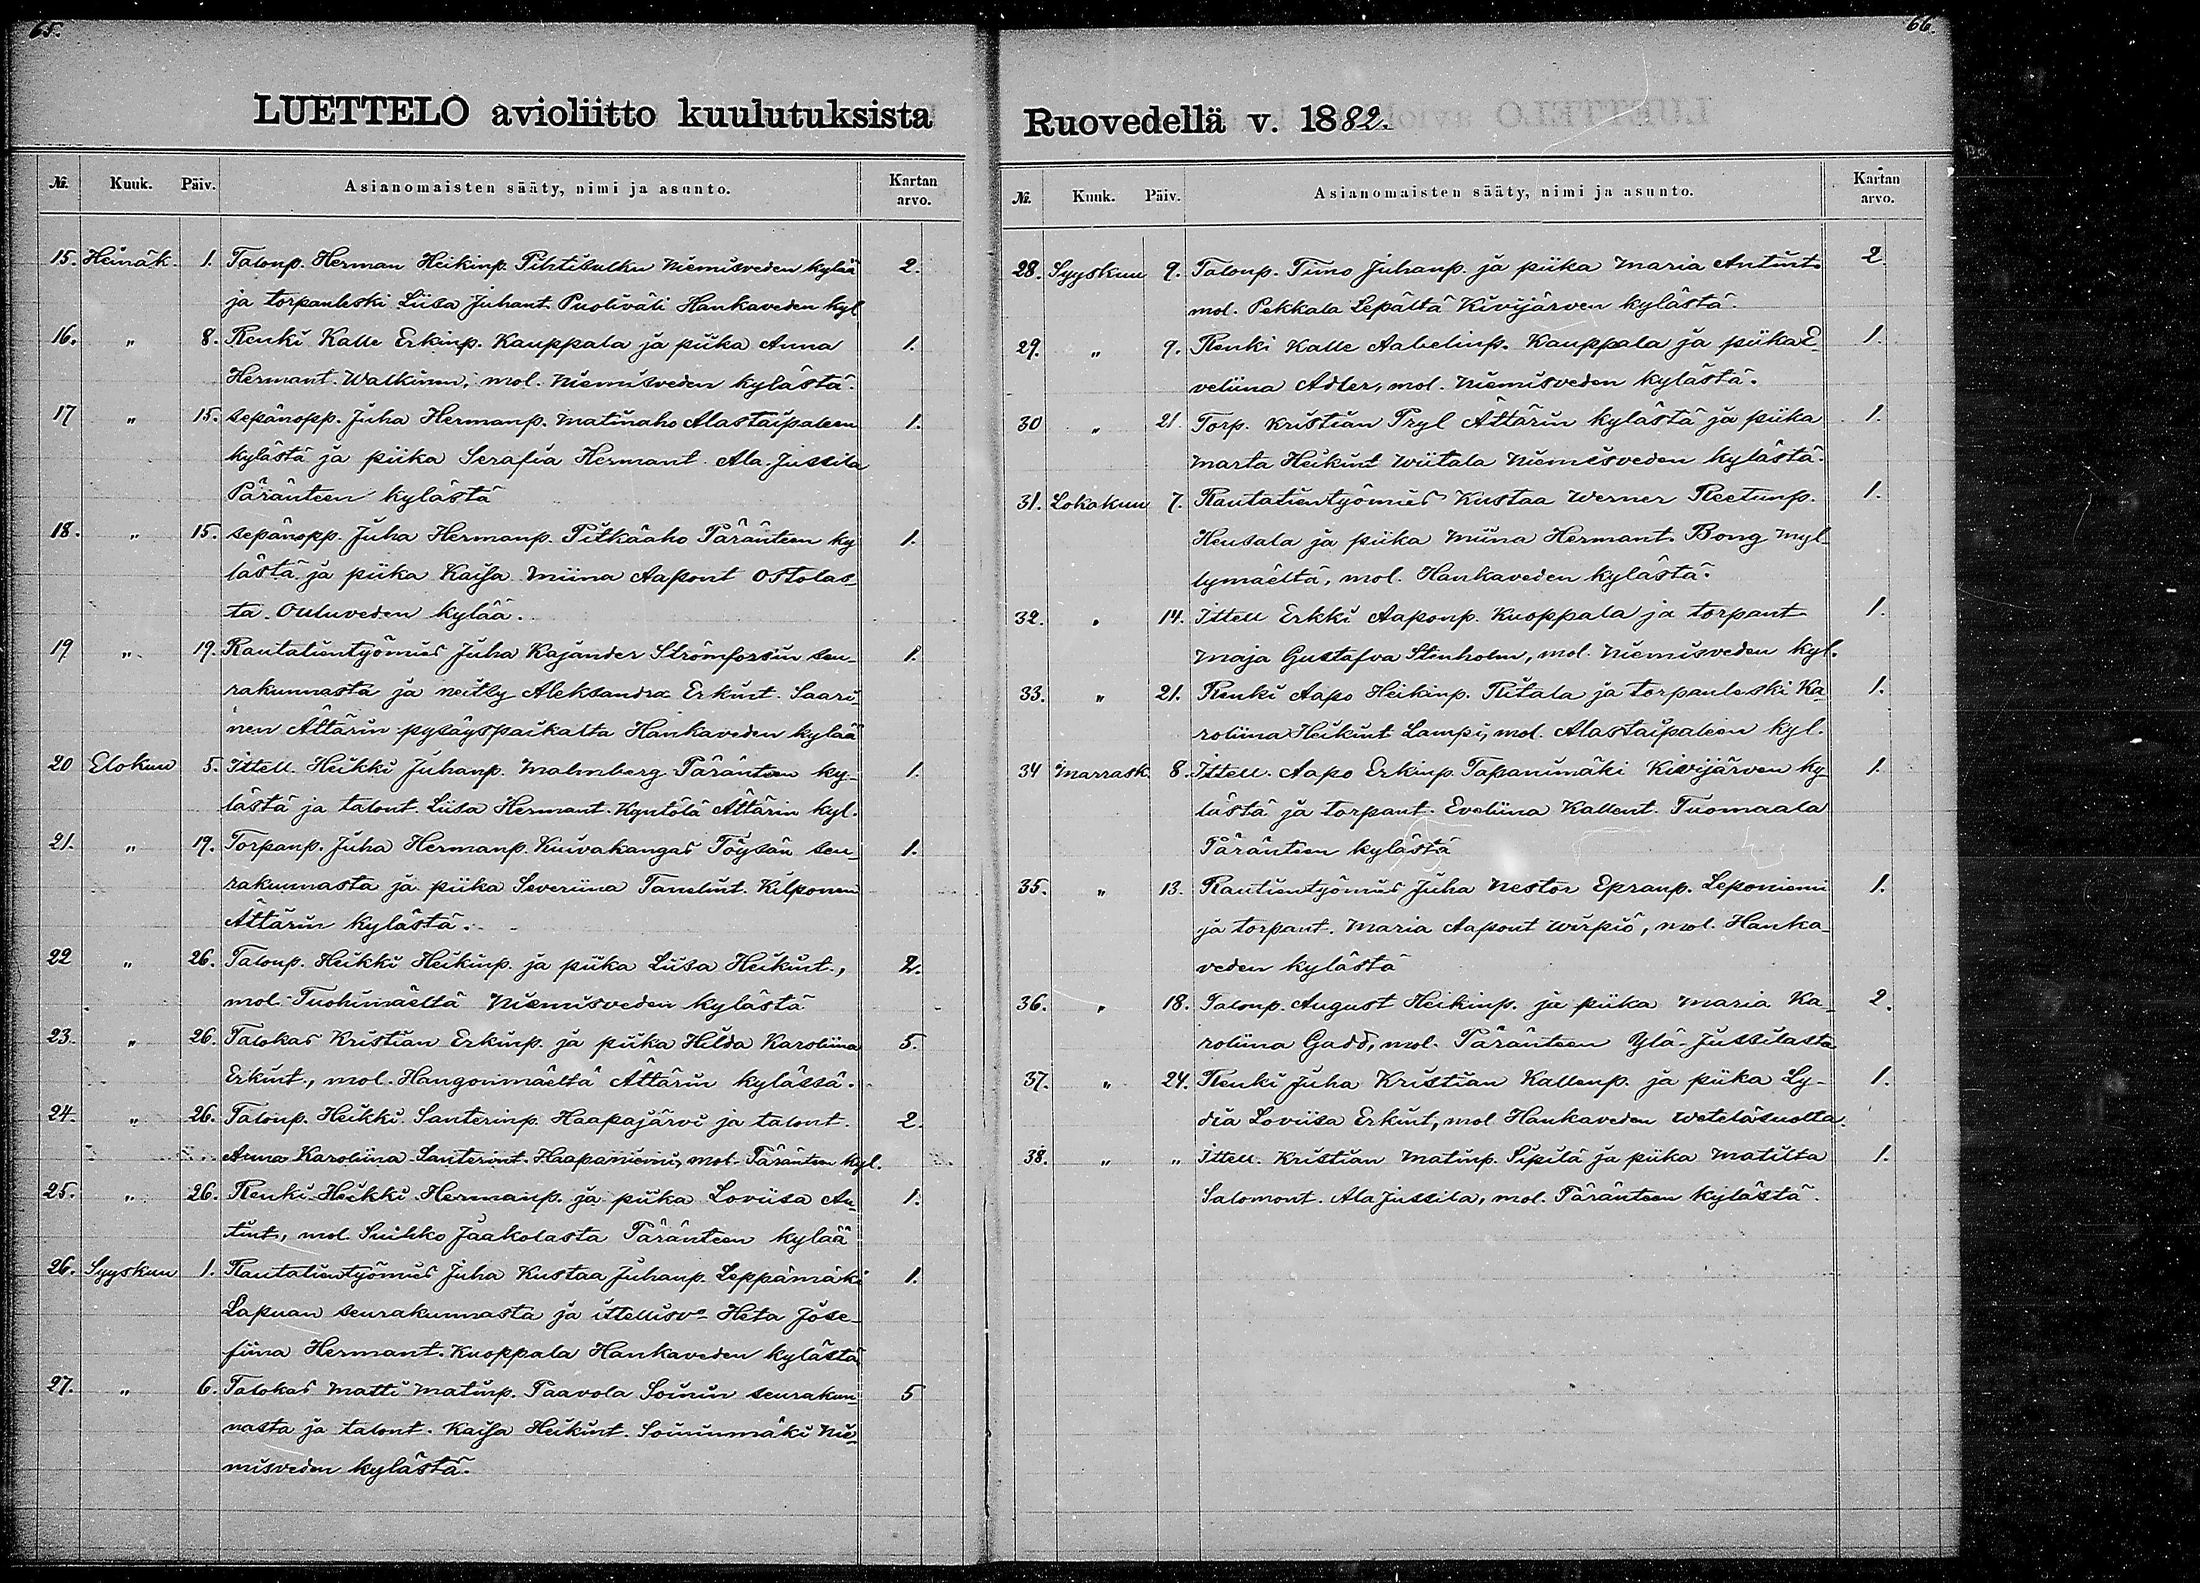 65.
LUETTELO avioliitto kuulutuksista
№. Kuuk. Päiv. Asianomaisten sääty, nimi ja asunto. Kartan arvo.
15. Heinäk. 1. Talonp. Herman Heikinp. Pihtisulku Niemisveden kylää 2.
ja torpanleski Liisa Juhant. Puoliväli Hankaveden kyl
16. " 8. Renki Kalle Erkinp. Kauppala ja piika Anna 1.
Hermant. Walkinen, mol. Niemisveden kylästä.
17 " 15. sepänopp. Juha Hermanp. Matinaho Alastaipaleen 1.
kylästä ja piika Serafia Hermant. Ala-Jussila
Peränteen kylästä
18. " 15. sepänopp. Juha Hermanp. Pitkäaho Peränteen ky 1.
lästä ja piika Kaisa Miina Aapont Ostolas-
ta Ouluveden kylää.
19 " 19. Rautatientyömies Juha Kajander Strömforsin seu- 1.
rakunnasta ja neitsy Aleksandra Erkint. Saari-
nen Ättärin pysäyspaikalta Hankaveden kylää
20 Elokuu 5. Ittell. Heikki Juhanp. Malmberg Peränteen ky- 1.
lästä ja talont. Liisa Hermant. Kyntölä Ättärin kyl.
21. " 19. Torpanp. Juha Hermanp. Kuivakangas Töysän seu- 1.
rakunnasta ja piika Severiina Tanelint. Kilponen
Ättärin kylästä.
22 " 26. Talonp. Heikki Heikinp. ja piika Liisa Heikint., 2.
mol. Tuohimäeltä Niemisveden kylästä
23. " 26. Talokas Kristian Erkinp. ja piika Hilda Karoliina 5.
Erkint., mol. Hangonmäeltä Ättärin kylässä.
24. " 26. Talonp. Heikki Santerinp. Haapajärvi ja talont. 2.
Anna Karoliina Santerint. Haapaniemi, mol. Peränteen kyl.
25. " 26. Renki Heikki Hermanp. ja piika Loviisa An- 1.
tint, mol. Suikko Jaakolasta Peränteen kylää
26. Syyskuu 1. Rautatientyömies Juha Kustaa Juhanp. Leppämäki 1.
Lapuan seurakunnasta ja ittellisv. Heta Jose-
fiina Hermant. Kuoppala Hankaveden kylästä
27. " 6. Talokas Matti Matinp. Paavola Soinin seurakun- 5
nasta ja talont. Kaisa Heikint. Soininmäki Nie-
misveden kylästä.
66.
Ruovedellä v. 1882.
№. Kuuk. Päiv. Asianomaisten sääty, nimi ja asunto. Kartan arvo.
28. Syyskuu 9. Talonp. Timo Juhanp. ja piika Maria Antint. 2.
mol. Pekkala Lepältä Kivijärven kylästä.
29. " 9. Renki Kalle Aabelinp. Kauppala ja piika E- 1.
veliina Adler, mol. Niemisveden kylästä.
30 " 21. Torp. Kristian Pryl Ättärin kylästä ja piika 1.
Marta Heikint Wiitala Niemisveden kylästä.
31. Lokakuu 7. Rautatientyömies Kustaa Werner Reetunp. 1.
Heusala ja piika Miina Hermant. Bong Myl-
lymäeltä, mol. Hankaveden kylästä.
32. " 14. Ittell Erkki Aaponp. Kuoppala ja torpant 1.
Maja Gustafva Stenholm, mol. Niemisveden kyl.
33. " 21. Renki Aapo Heikinp. Ritala ja torpanleski Ka- 1.
roliina Heikint Lampi, mol. Alastaipaleen kyl.
34 Marrask. 8. Ittell. Aapo Erkinp. Tapanimäki Kivijärven ky- 1.
lästä ja torpant. Eveliina Kallent. Tuomaala
Peränteen kylästä
35. " 13. Rautientyömies Juha Nestor Epranp. Leponiemi 1.
ja torpant. Maria Aapont Wirpiö, mol. Hanka-
veden kylästä
36. " 18. Talonp. August Heikinp. ja piika Maria Ka- 2.
roliina Gadd, mol. Peränteen Ylä-Jussilasta
37. " 24. Renki Juha Kristian Kallenp. ja piika Ly- 1.
dia Loviisa Erkint, mol Hankaveden Weteläsuolta.
38. " " Ittell. Kristian Matinp. Sipilä ja piika Matilta 1.
Salomont. Ala Jussila, mol. Peränteen kylästä.